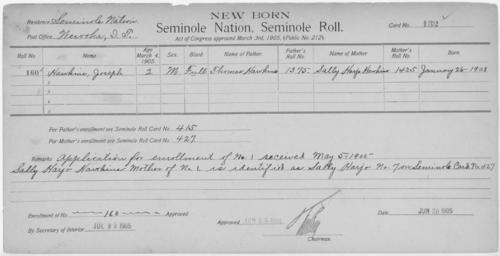 NEW BORN
Residence Seminole Nation
Seminole Nation, Seminole Roll.
Card No.
Post Office, Wewoka, I. T.
Act of Congress approved March 3rd, 1905. (Public No. 212).
Roll No. Age March 4, 1905. Sex. Blood. Name of Father. Father's Roll No. Name of Mother. Mother's Roll No. Born.
160 Hawkins, Joseph 2 M Full Thomas Hawkins 1375 Sally Harjo Hawkins 1425 January 26 1903
2
3
4
For Father's enrollment see Seminole Roll Card No. 415
For Mother's enrollment see Seminole Roll Card No. 427
Remarks Application for enrollment of No. 1 received May 5-1905
Sally Harjo Hawkins Mother of No. 1 is identified as Sally Harjo No. 7 on Seminole Card No. 427
Enrollment of No. 160 Approved
By Secretary of Interior JUL 1905
Approved 1905
Chairman.
Date JUN 1905